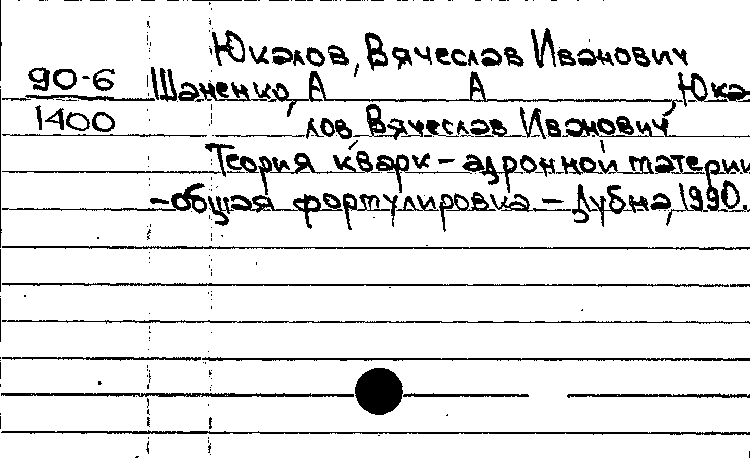 Юкалов, Вячеслав Иванович
90-6 Шаненко, А А , Юка-
1400 лов, Вячеслав Иванович
Теория кварк-адронной материи
-общая формулировка - Дубна, 1990.